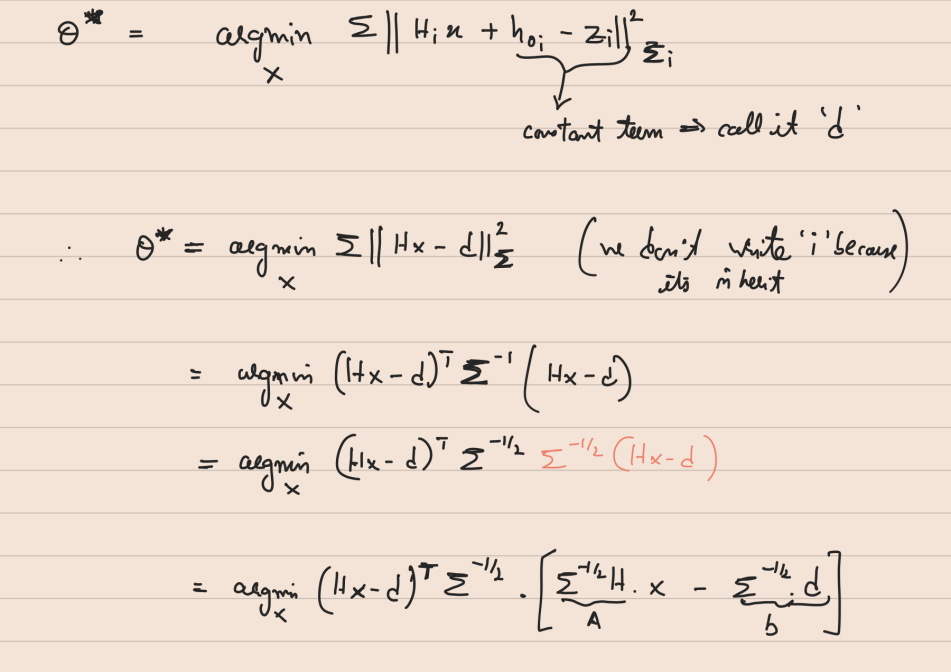 Θ* = argmin_x Σ || H_i x + h_{0i} - z_i ||²_{Σ_i}
constant term ⇒ call it 'd'
∴ Θ* = argmin_x Σ || Hx - d ||²_Σ (we don't write 'i' because
its inherit)
= argmin_x (Hx - d)^T Σ^{-1} (Hx - d)
= argmin_x (Hx - d)^T Σ^{-1/2} Σ^{-1/2} (Hx - d)
= argmin_x (Hx - d)^T Σ^{-1/2} · [Σ^{-1/2} H · x - Σ^{-1/2} · d]
A b